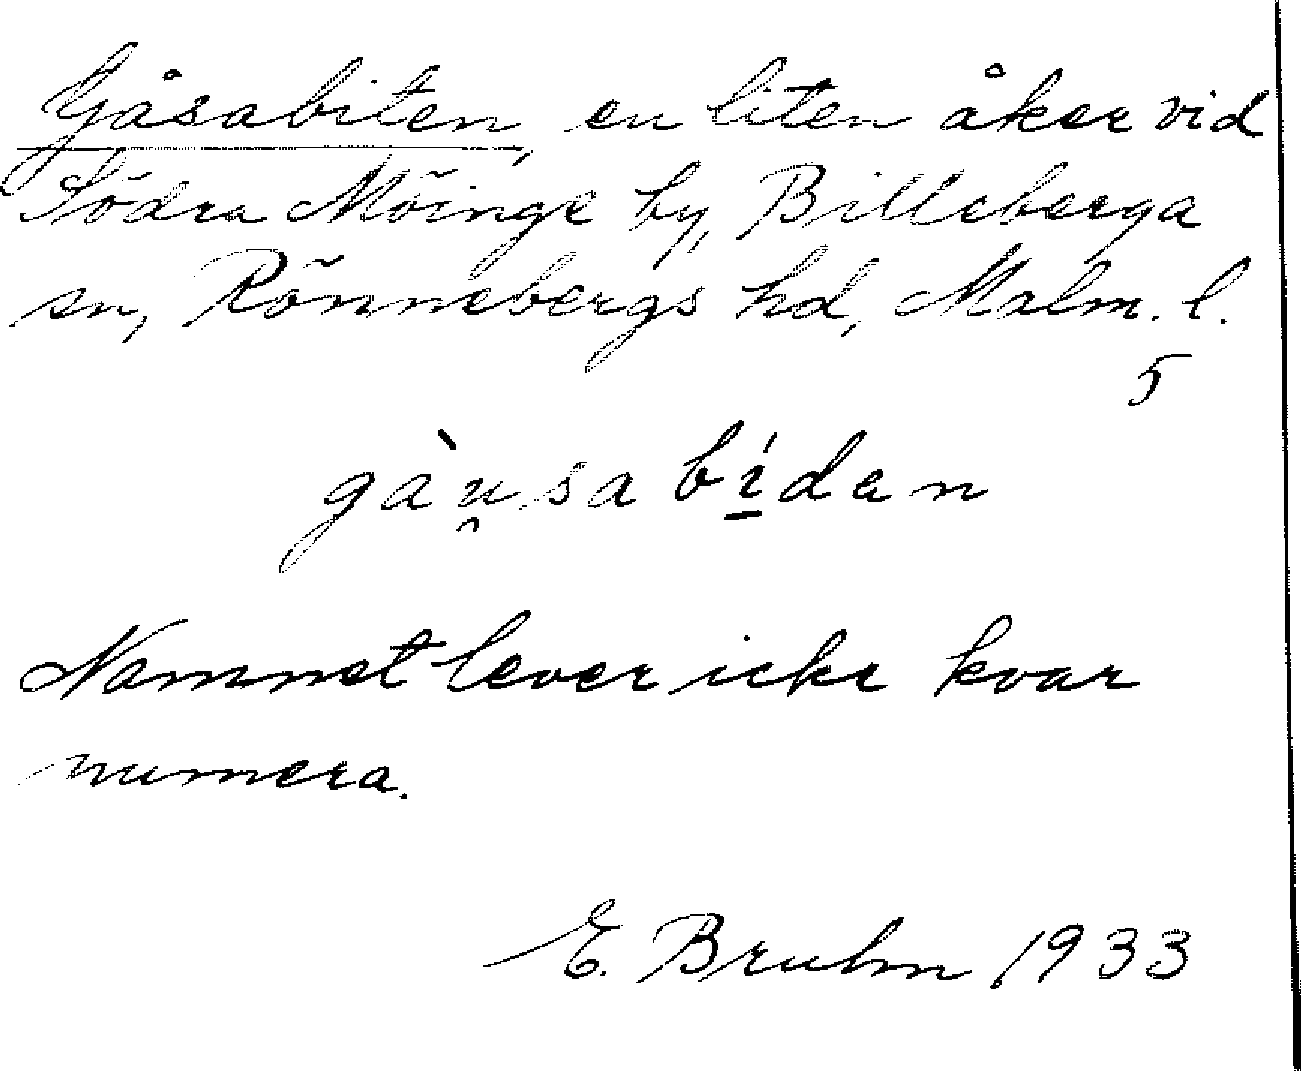 Gåsabiten, en liten åker vid
Södra Möinge by, Billeberga
sn, Rönnebergs hd, Malm. l.
5
gàu̯sabí̱dan
Namnet lever icke kvar
numera.
E. Bruhn 1933